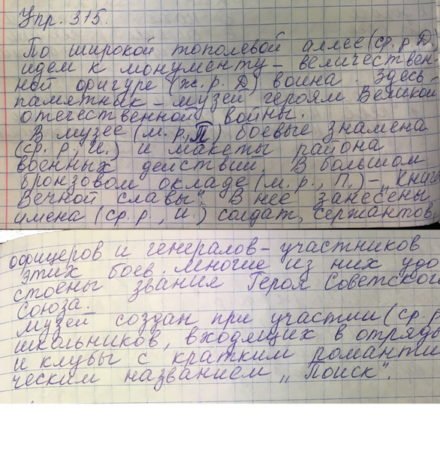 Упр. 315.
По широкой тополевой аллее (ср. р Д
идем к монументу - величествен-
ной фигуре (ж. р. Д) воина. Здесь-
памятник - музей героям Великой
отечественной войны.
В музее (м. р, П) боевые знамена
(ср. р, И.) и макеты района
военных действий. В большом
бронзовом окладе (м. р., П.) - „Книга
Вечной славы". В нее занесены
имена (ср. р, и.) солдат, сержантов,
офицеров и генералов - участников
этих боев. Многие из них удо
стоены звание Героя Советского
Союза.
Музей создан при участии (ср. р
школьников, входящих в отряды
и клубы с кратким романти
ческим названием „Поиск".